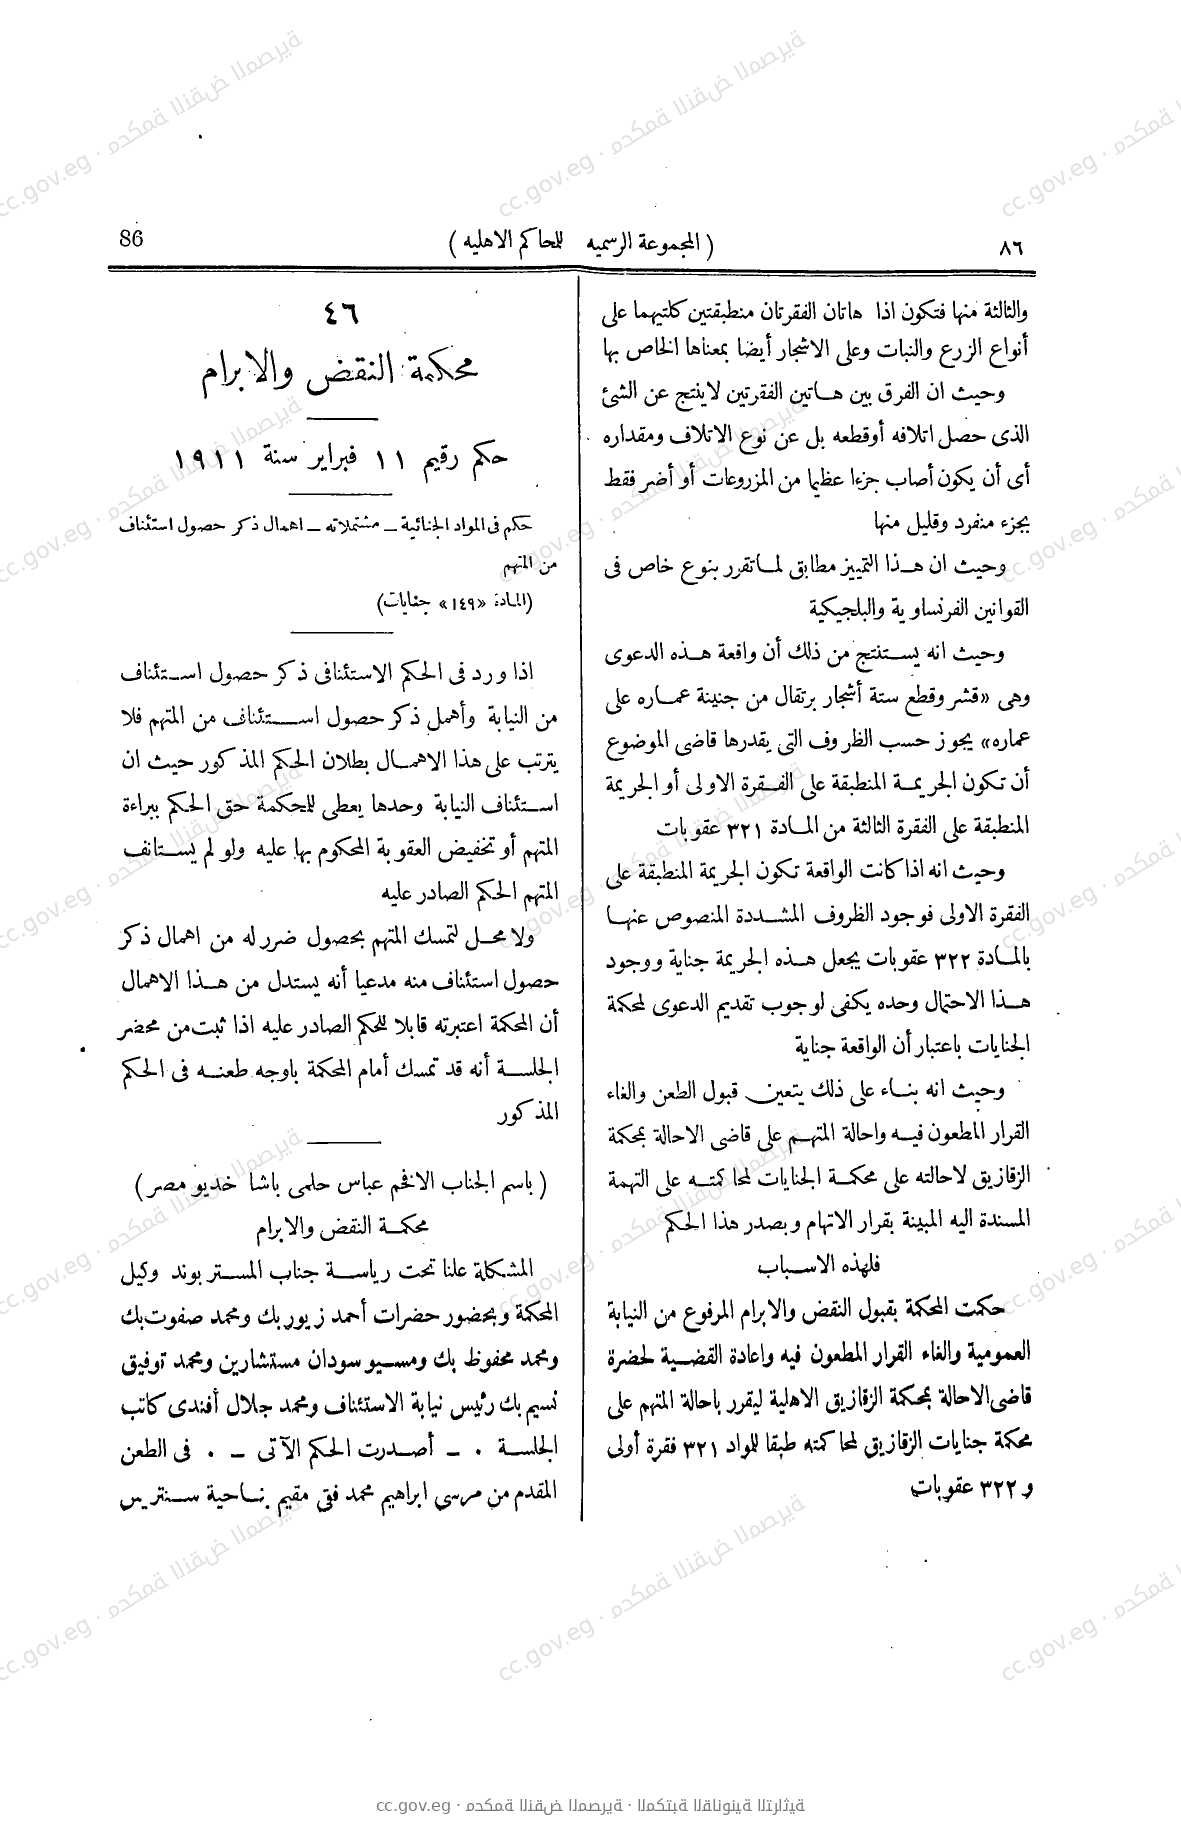 ٨٦
( المجموعة الرسميه للحاكم الاهليه )
86
والثالثة منها فتكون اذا هاتان الفقرتان منطبقتين كلتيهما على
أنواع الزرع والنبات وعلى الاشجار أيضا بمعناها الخاص بها
وحيث ان الفرق بين هاتين الفقرتين لاينتج عن الشئ
الذى حصل اتلافه أوقطعه بل عن نوع الاتلاف ومقداره
أى أن يكون أصاب جزءا عظيما من المزروعات أو أضر فقط
بجزء منفرد وقليل منها
وحيث ان هذا التمييز مطابق لما تقرر بنوع خاص فى
القوانين الفرنساوية والبلجيكية
وحيث انه يستنتج من ذلك أن واقعة هذه الدعوى
وهى «قشر وقطع ستة أشجار برتقال من جنينة عماره على
عماره» يجوز حسب الظروف التى يقدرها قاضى الموضوع
أن تكون الجريمة المنطبقة على الفقرة الاولى أو الجريمة
المنطبقة على الفقرة الثالثة من المادة ٣٢١ عقوبات
وحيث انه اذا كانت الواقعة تكون الجريمة المنطبقة على
الفقرة الاولى فوجود الظروف المشددة المنصوص عنها
بالمادة ٣٢٢ عقوبات يجعل هذه الجريمة جناية ووجود
هذا الاحتمال وحده يكفى لوجوب تقديم الدعوى لمحكمة
الجنايات باعتبار أن الواقعة جناية
وحيث انه بناء على ذلك يتعين قبول الطعن والغاء
القرار المطعون فيه واحالة المتهم على قاضى الاحالة بمحكمة
الزقازيق لاحالته على محكمة الجنايات لمحاكمته على التهمة
المسندة اليه المبينة بقرار الاتهام وبصدر هذا الحكم
فلهذه الاسباب
حكمت المحكمة بقبول النقض والابرام المرفوع من النيابة
العمومية والغاء القرار المطعون فيه واعادة القضية لحضرة
قاضى الاحالة بمحكمة الزقازيق الاهلية ليقرر باحالة المتهم على
محكمة جنايات الزقازيق لمحاكمته طبقا للمواد ٣٢١ فقرة أولى
و ٣٢٢ عقوبات
٤٦
محكمة النقض والابرام
حكم رقيم ١١ فبراير سنة ١٩١١
حكم فى المواد الجنائية – مشتملاته – اهمال ذكر حصول استئناف
من المتهم
(المادة «١٤٩» جنايات)
اذا ورد فى الحكم الاستئنافى ذكر حصول استئناف
من النيابة وأهمل ذكر حصول استئناف من المتهم فلا
يترتب على هذا الاهمال بطلان الحكم المذكور حيث ان
استئناف النيابة وحدها يعطى للحكمة حق الحكم ببراءة
المتهم أو تخفيض العقوبة المحكوم بها عليه ولو لم يستانف
المتهم الحكم الصادر عليه
ولا محل لتمسك المتهم بحصول ضرر له من اهمال ذكر
حصول استئناف منه مدعيا أنه يستدل من هذا الاهمال
أن المحكمة اعتبرته قابلا للحكم الصادر عليه اذا ثبت من محضر
الجلسة أنه قد تمسك أمام المحكمة باوجه طعنه فى الحكم
المذكور
( باسم الجناب الافخم عباس حلمى باشا خديو مصر )
محكمة النقض والابرام
المشكلة علنا تحت رياسة جناب المستر بوند وكيل
المحكمة وبحضور حضرات أحمد زيور بك ومحمد صفوت بك
ومحمد محفوظ بك ومسيو سودان مستشارين ومحمد توفيق
نسيم بك رئيس نيابة الاستئناف ومحمد جلال أفندى كاتب
الجلسة . – أصدرت الحكم الآتى – . فى الطعن
المقدم من مرسى ابراهيم محمد فقى مقيم بناحية سنتريس
cc.gov.eg · محكمة النقض المصرية · المكتبة القانونية التراثية